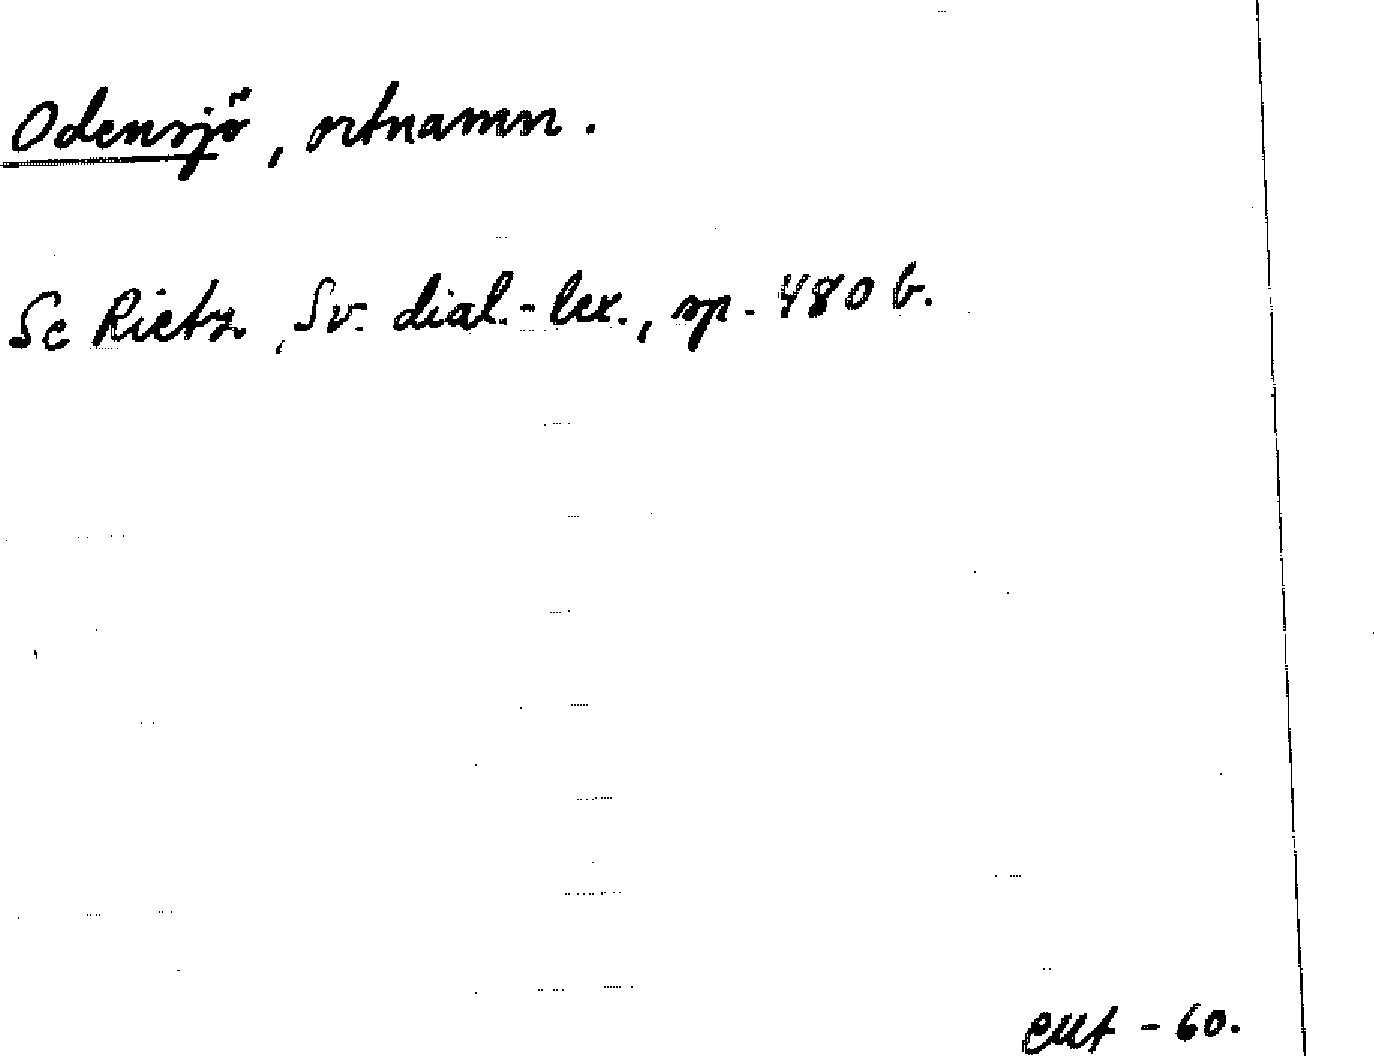 Odensjö, ortnamn.
Se Rietz, Sv. dial.-lex., sp. 480 b.
- 60.